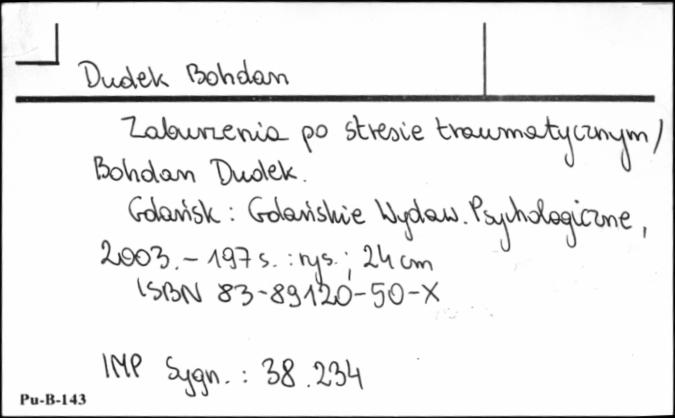 Dudek Bohdan
Zaburzenia po stresie traumatycznym /
Bohdan Dudek.
Gdańsk : Gdańskie Wydaw. Psychologiczne,
2003. - 197 s. : rys. ; 24 cm
ISBN 83-89120-50-X
IMP Sygn. : 38.234
Pu-B-143